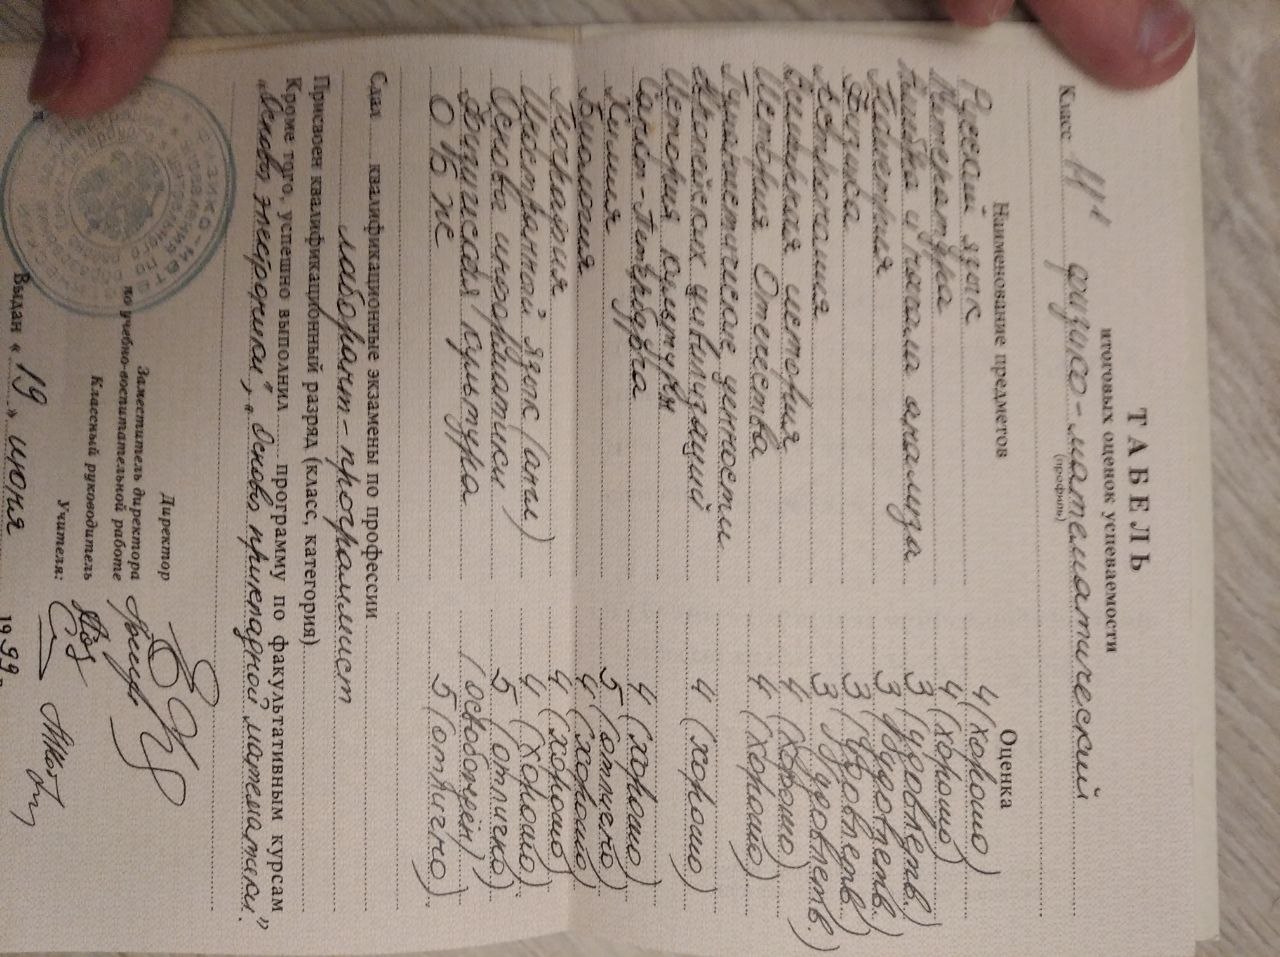 ТАБЕЛЬ
итоговых оценок успеваемости
Класс 11¹ физико-математический
(профиль)
Наименование предметов Оценка
Русский язык 4 (хорошо)
Литература 4 (хорошо)
Алгебра и начала анализа 3 (удовлетв.)
Геометрия 3 (удовлетв.)
Физика 3 (удовлетв.)
Астрономия 3 (удовлетв.)
Всемирная история 4 (хорошо)
История Отечества 4 (хорошо)
Гуманистические ценности
европейских цивилизаций 4 (хорошо)
История культуры
Санкт-Петербурга 4 (хорошо)
Химия 5 (отлично)
Биология 4 (хорошо)
География 4 (хорошо)
Иностранный язык (англ) 4 (хорошо)
Основы информатики 5 (отлично)
Физическая культура (освобождён)
ОБЖ 5 (отлично)
Сдал квалификационные экзамены по профессии
лаборант-программист
Присвоен квалификационный разряд (класс, категория)
Кроме того, успешно выполнил программу по факультативным курсам
„Основы электроники", „Основы прикладной математики".
Директор
Заместитель директора
по учебно-воспитательной работе
Классный руководитель
Учителя:
Выдан « 19 » июня 1999 г.